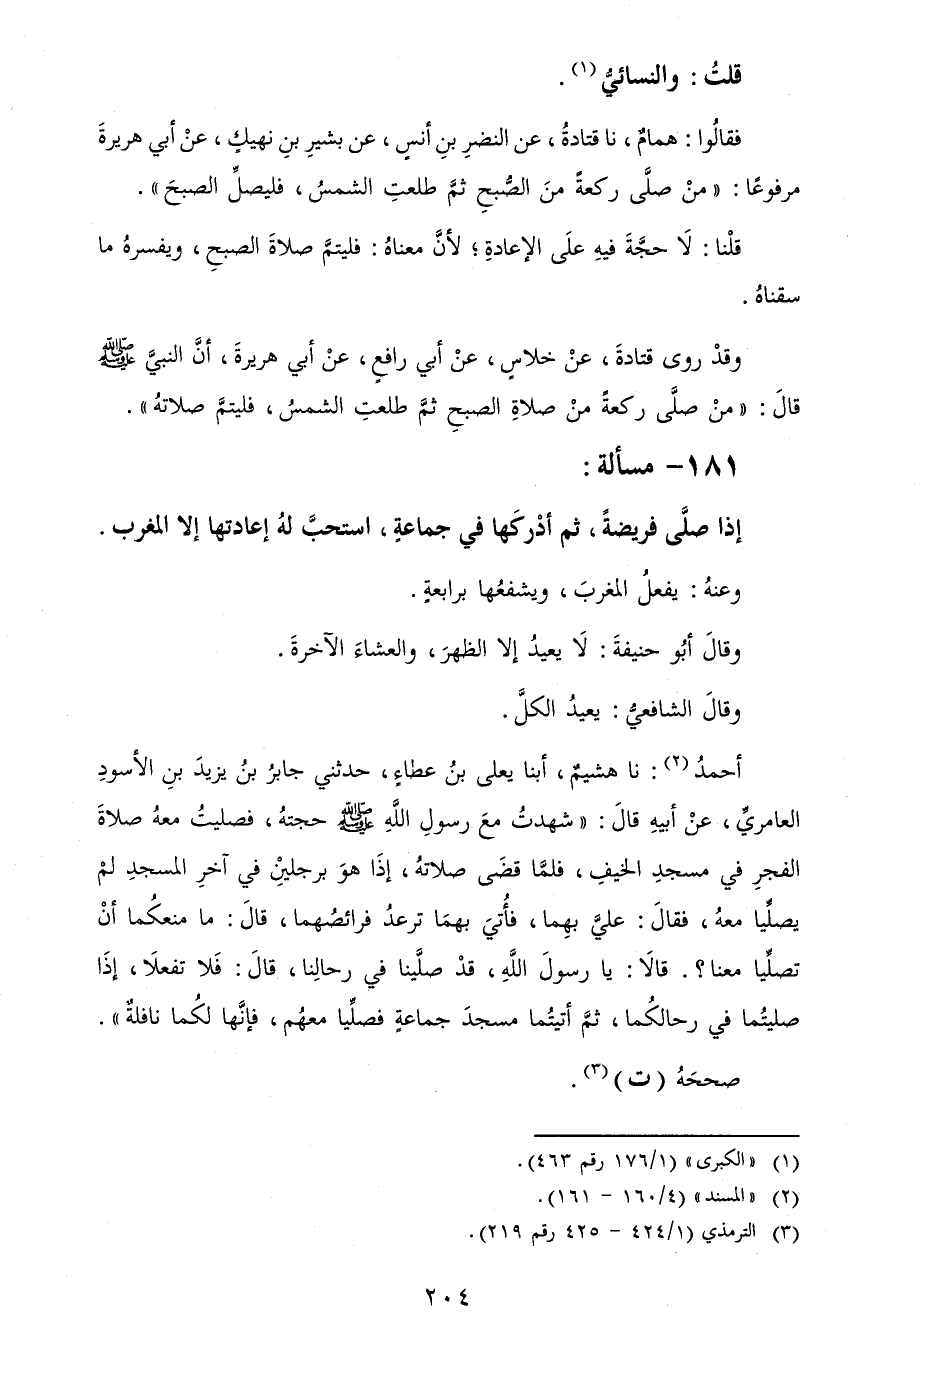 قلتُ : والنسائيُّ (١) .
فقالُوا : همامٌ ، نا قتادةُ ، عن النضرِ بنِ أنسٍ ، عن بشيرِ بنِ نهيكٍ ، عنْ أبي هريرةَ
مرفوعًا : « منْ صلَّى ركعةً منَ الصُّبحِ ثمَّ طلعتِ الشمسُ ، فليصلِّ الصبحَ » .
قلْنا : لَا حجَّةَ فيهِ علَى الإعادةِ ؛ لأنَّ معناهُ : فليتمَّ صلاةَ الصبحِ ، ويفسرهُ ما
سقناهُ .
وقدْ روى قتادةَ ، عنْ خلاسٍ ، عنْ أبي رافعٍ ، عنْ أبي هريرةَ ، أنَّ النبيَّ ﷺ
قالَ : « منْ صلَّى ركعةً منْ صلاةِ الصبحِ ثمَّ طلعتِ الشمسُ ، فليتمَّ صلاتهُ » .
١٨١- مسألة :
إذا صلَّى فريضةً ، ثم أدْركَها في جماعةٍ ، استحبَّ لهُ إعادتها إلا المغرب .
وعنهُ : يفعلُ المغربَ ، ويشفعُها برابعةٍ .
وقالَ أبُو حنيفةَ : لَا يعيدُ إلا الظهرَ ، والعشاءَ الآخرةَ .
وقالَ الشافعيُّ : يعيدُ الكلَّ .
أحمدُ (٢) : نا هشيمٌ ، أبنا يعلى بنُ عطاءٍ ، حدثني جابرُ بنُ يزيدَ بنِ الأسودِ
العامريِّ ، عنْ أبيهِ قالَ : « شهدتُ معَ رسولِ اللَّهِ ﷺ حجتهُ ، فصليتُ معهُ صلاةَ
الفجرِ في مسجدِ الخيفِ ، فلمَّا قضَى صلاتهُ ، إذَا هوَ برجلينْ في آخرِ المسجدِ لمْ
يصلِّيا معهُ ، فقالَ : عليَّ بهِما ، فأُتيَ بهمَا ترعدُ فرائصُهما ، قالَ : ما منعكُما أنْ
تصلِّيا معنا ؟ . قالَا : يا رسولَ اللَّهِ ، قدْ صلَّينا في رحالِنا ، قالَ : فَلا تفعلَا ، إذَا
صليتُما في رحالكُما ، ثمَّ أتيتُما مسجدَ جماعةٍ فصلِّيا معهُم ، فإنَّها لكُما نافلةٌ » .
صححَهُ ( ت ) (٣) .
(١) « الكبرى » (١/١٧٦ رقم ٤٦٣).
(٢) « المسند » (٤/١٦٠ - ١٦١).
(٣) الترمذي (١/٤٢٤ - ٤٢٥ رقم ٢١٩).
٢٠٤